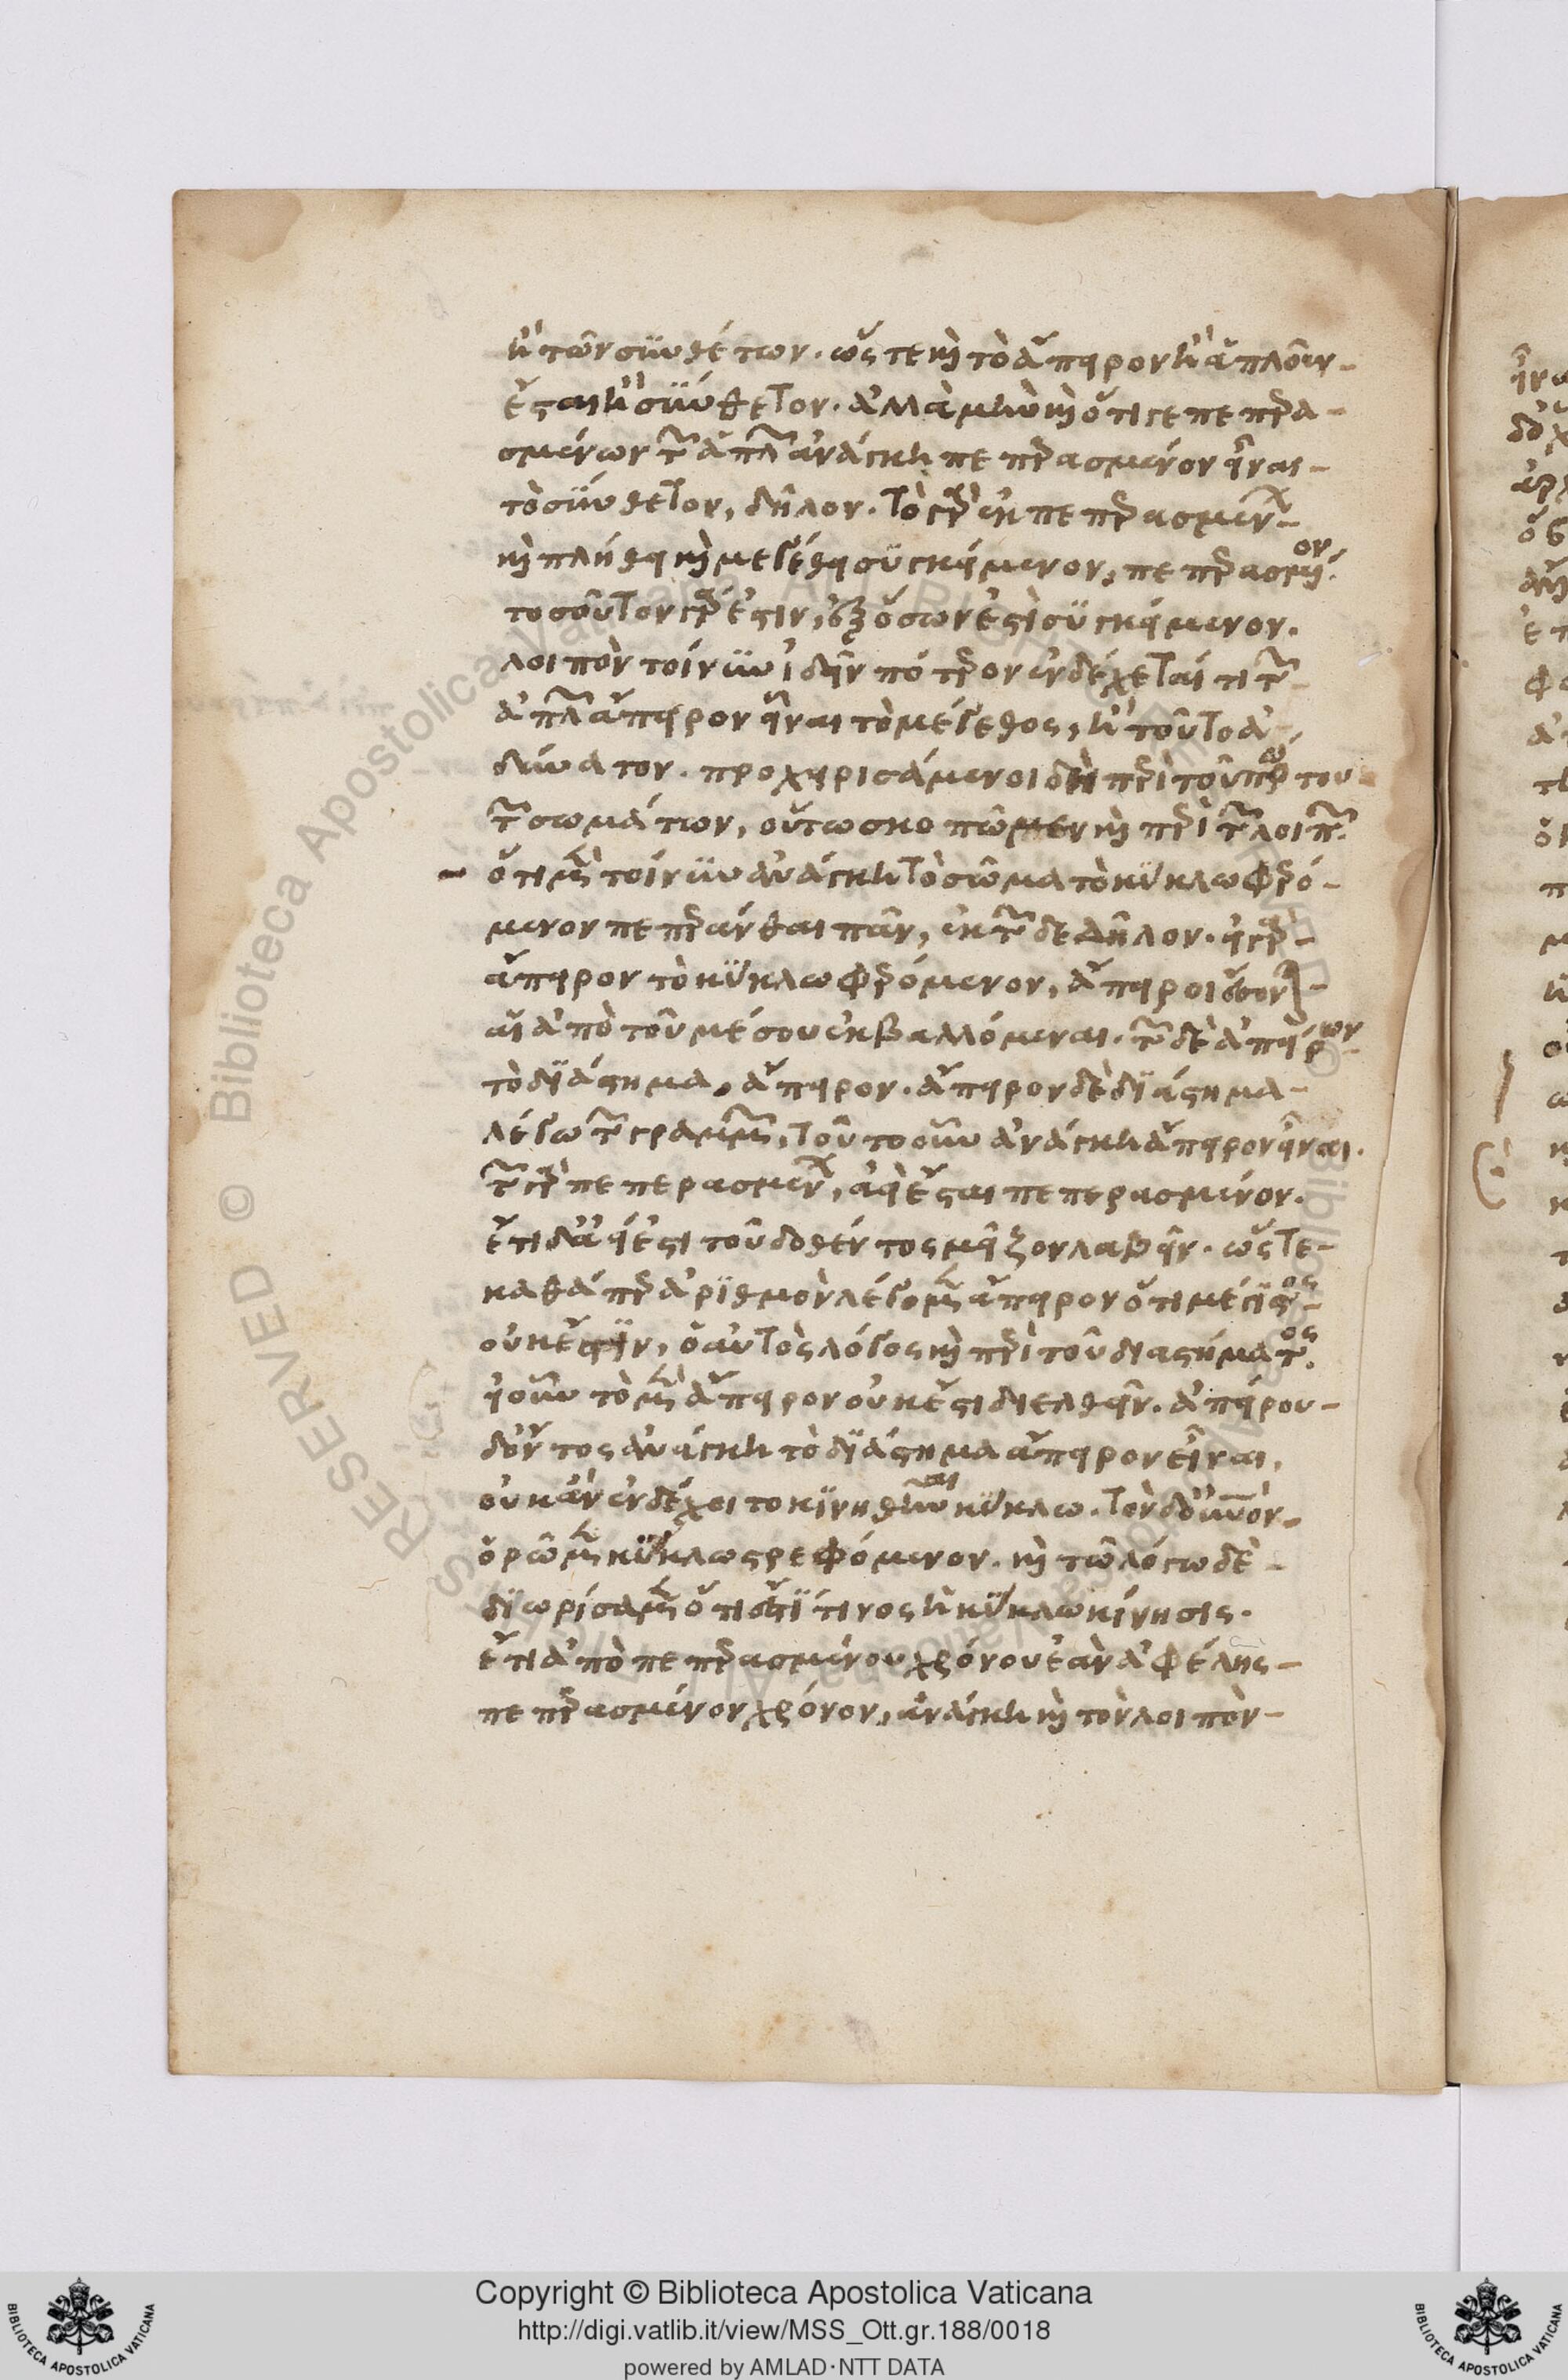 ἢ τῶν συνθέτων. ὥστε καὶ τὸ ἄπειρον ἢ ἁπλοῦν
ἔσται ἢ σύνθετον. ἀλλὰ μὴν καὶ ὅτι γε πεπερα-
σμένων τῶν ἁπλῶν ἀνάγκη πεπερασμένον εἶναι
τὸ σύνθετον, δῆλον. τὸ γὰρ ἐκ πεπερασμένων
καὶ πλήθει καὶ μεγέθει συγκείμενον, πεπερασμένον.
τοσοῦτον γάρ ἐστιν, ἐξ ὅσων ἐστὶ συγκείμενον.
λοιπὸν τοίνυν ἰδεῖν πότερον ἐνδέχεταί τι τῶν
ἁπλῶν ἄπειρον εἶναι τὸ μέγεθος, ἢ τοῦτο ἀ-
δύνατον. προχειρισάμενοι δὴ περὶ τοῦ πρώτου
τῶν σωμάτων, οὕτω σκοπῶμεν καὶ περὶ τῶν λοιπῶν.
ὅτι μὲν τοίνυν ἀνάγκη τὸ σῶμα τὸ κύκλω φερό-
μενον πεπεράνθαι πᾶν, ἐκ τῶνδε δῆλον. εἰ γὰρ
ἄπειρον τὸ κύκλω φερόμενον, ἄπειροι ἔσονται
αἱ ἀπὸ τοῦ μέσου ἐκβαλλόμεναι. τῶν δὲ ἀπείρων
τὸ διάστημα, ἄπειρον. ἄπειρον δὲ διάστημα
λέγω τῶν γραμμῶν, τοῦτο οὖν ἀνάγκη ἄπειρον εἶναι.
τῶν γὰρ πεπερασμένων, ἀεὶ ἔσται πεπερασμένον.
ἔτι δ' ἀεί ἐστι τοῦ δοθέντος μεῖζον λαβεῖν. ὥστε
καθάπερ ἀριθμὸν λέγομεν ἄπειρον ὅτι μέγιστος
οὐκ ἔστιν, ὁ αὐτὸς λόγος καὶ περὶ τοῦ διαστήματος.
εἰ οὖν τὸ μὲν ἄπειρον οὐκ ἔστι διελθεῖν. ἀπείρου
δ' ὄντος ἀνάγκη τὸ διάστημα ἄπειρον εἶναι,
οὐκ ἂν ἐνδέχοιτο κινηθῆναι κύκλω. τὸν δ' οὐρανὸν
ὁρῶμεν κύκλω στρεφόμενον. καὶ τῶ λόγω δὲ
διωρίσαμεν ὅτι ἐστί τινος ἡ κύκλω κίνησις.
ἔτι ἀπὸ πεπερασμένου χρόνου ἐὰν ἀφέλης
πεπερασμένον χρόνον, ἀνάγκη καὶ τὸν λοιπὸν
Copyright © Biblioteca Apostolica Vaticana
http://digi.vatlib.it/view/MSS_Ott.gr.188/0018
powered by AMLAD·NTT DATA